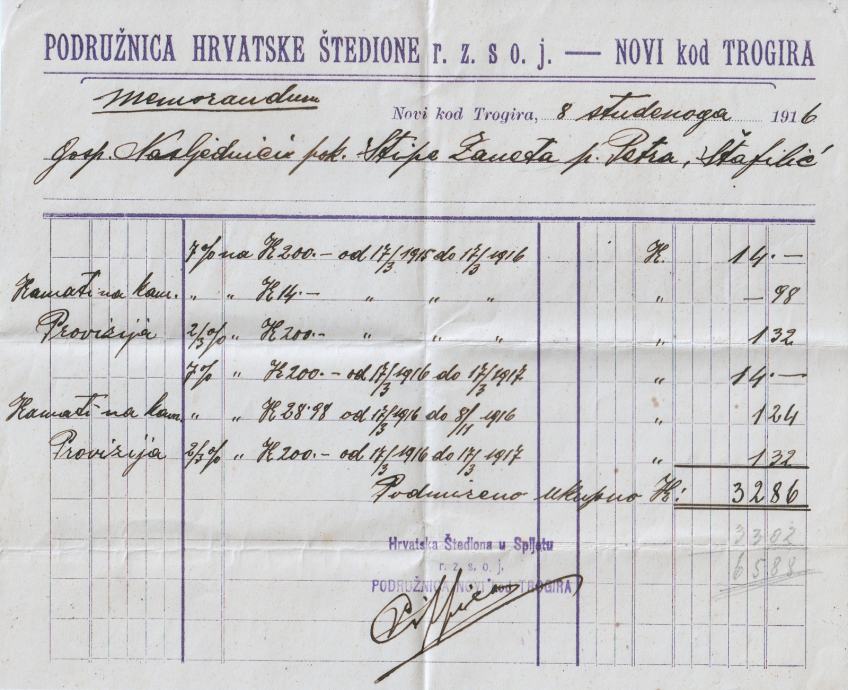 PODRUŽNICA HRVATSKE ŠTEDIONE r. z. s o. j. — NOVI kod TROGIRA
Memorandum
Novi kod Trogira, 8 studenoga 1916
Gosp. Nasljednici pok. Stipe Zaneta p. Petra, Štafilić
7% na K 200.- od 17/3 1915 do 17/3 1916 K. 14.—
Kamati na kam. " " K 14.- " " " " — 98
Provizija 2/3% " K 200.- " " " 1 32
7% " K 200.- od 17/3 1916 do 17/3 1917 " 14.—
Kamati na kam. " " K 28.98 od 17/3 1916 do 8/11 1916 " 1 24
Provizija 2/3% " K 200.- od 17/3 1916 do 17/3 1917 " 1 32
Podmireno ukupno K: 32 86
33 02
65 88
Hrvatska Štediona u Spljetu
r. z. s. o. j.
PODRUŽNICA NOVI kod TROGIRA